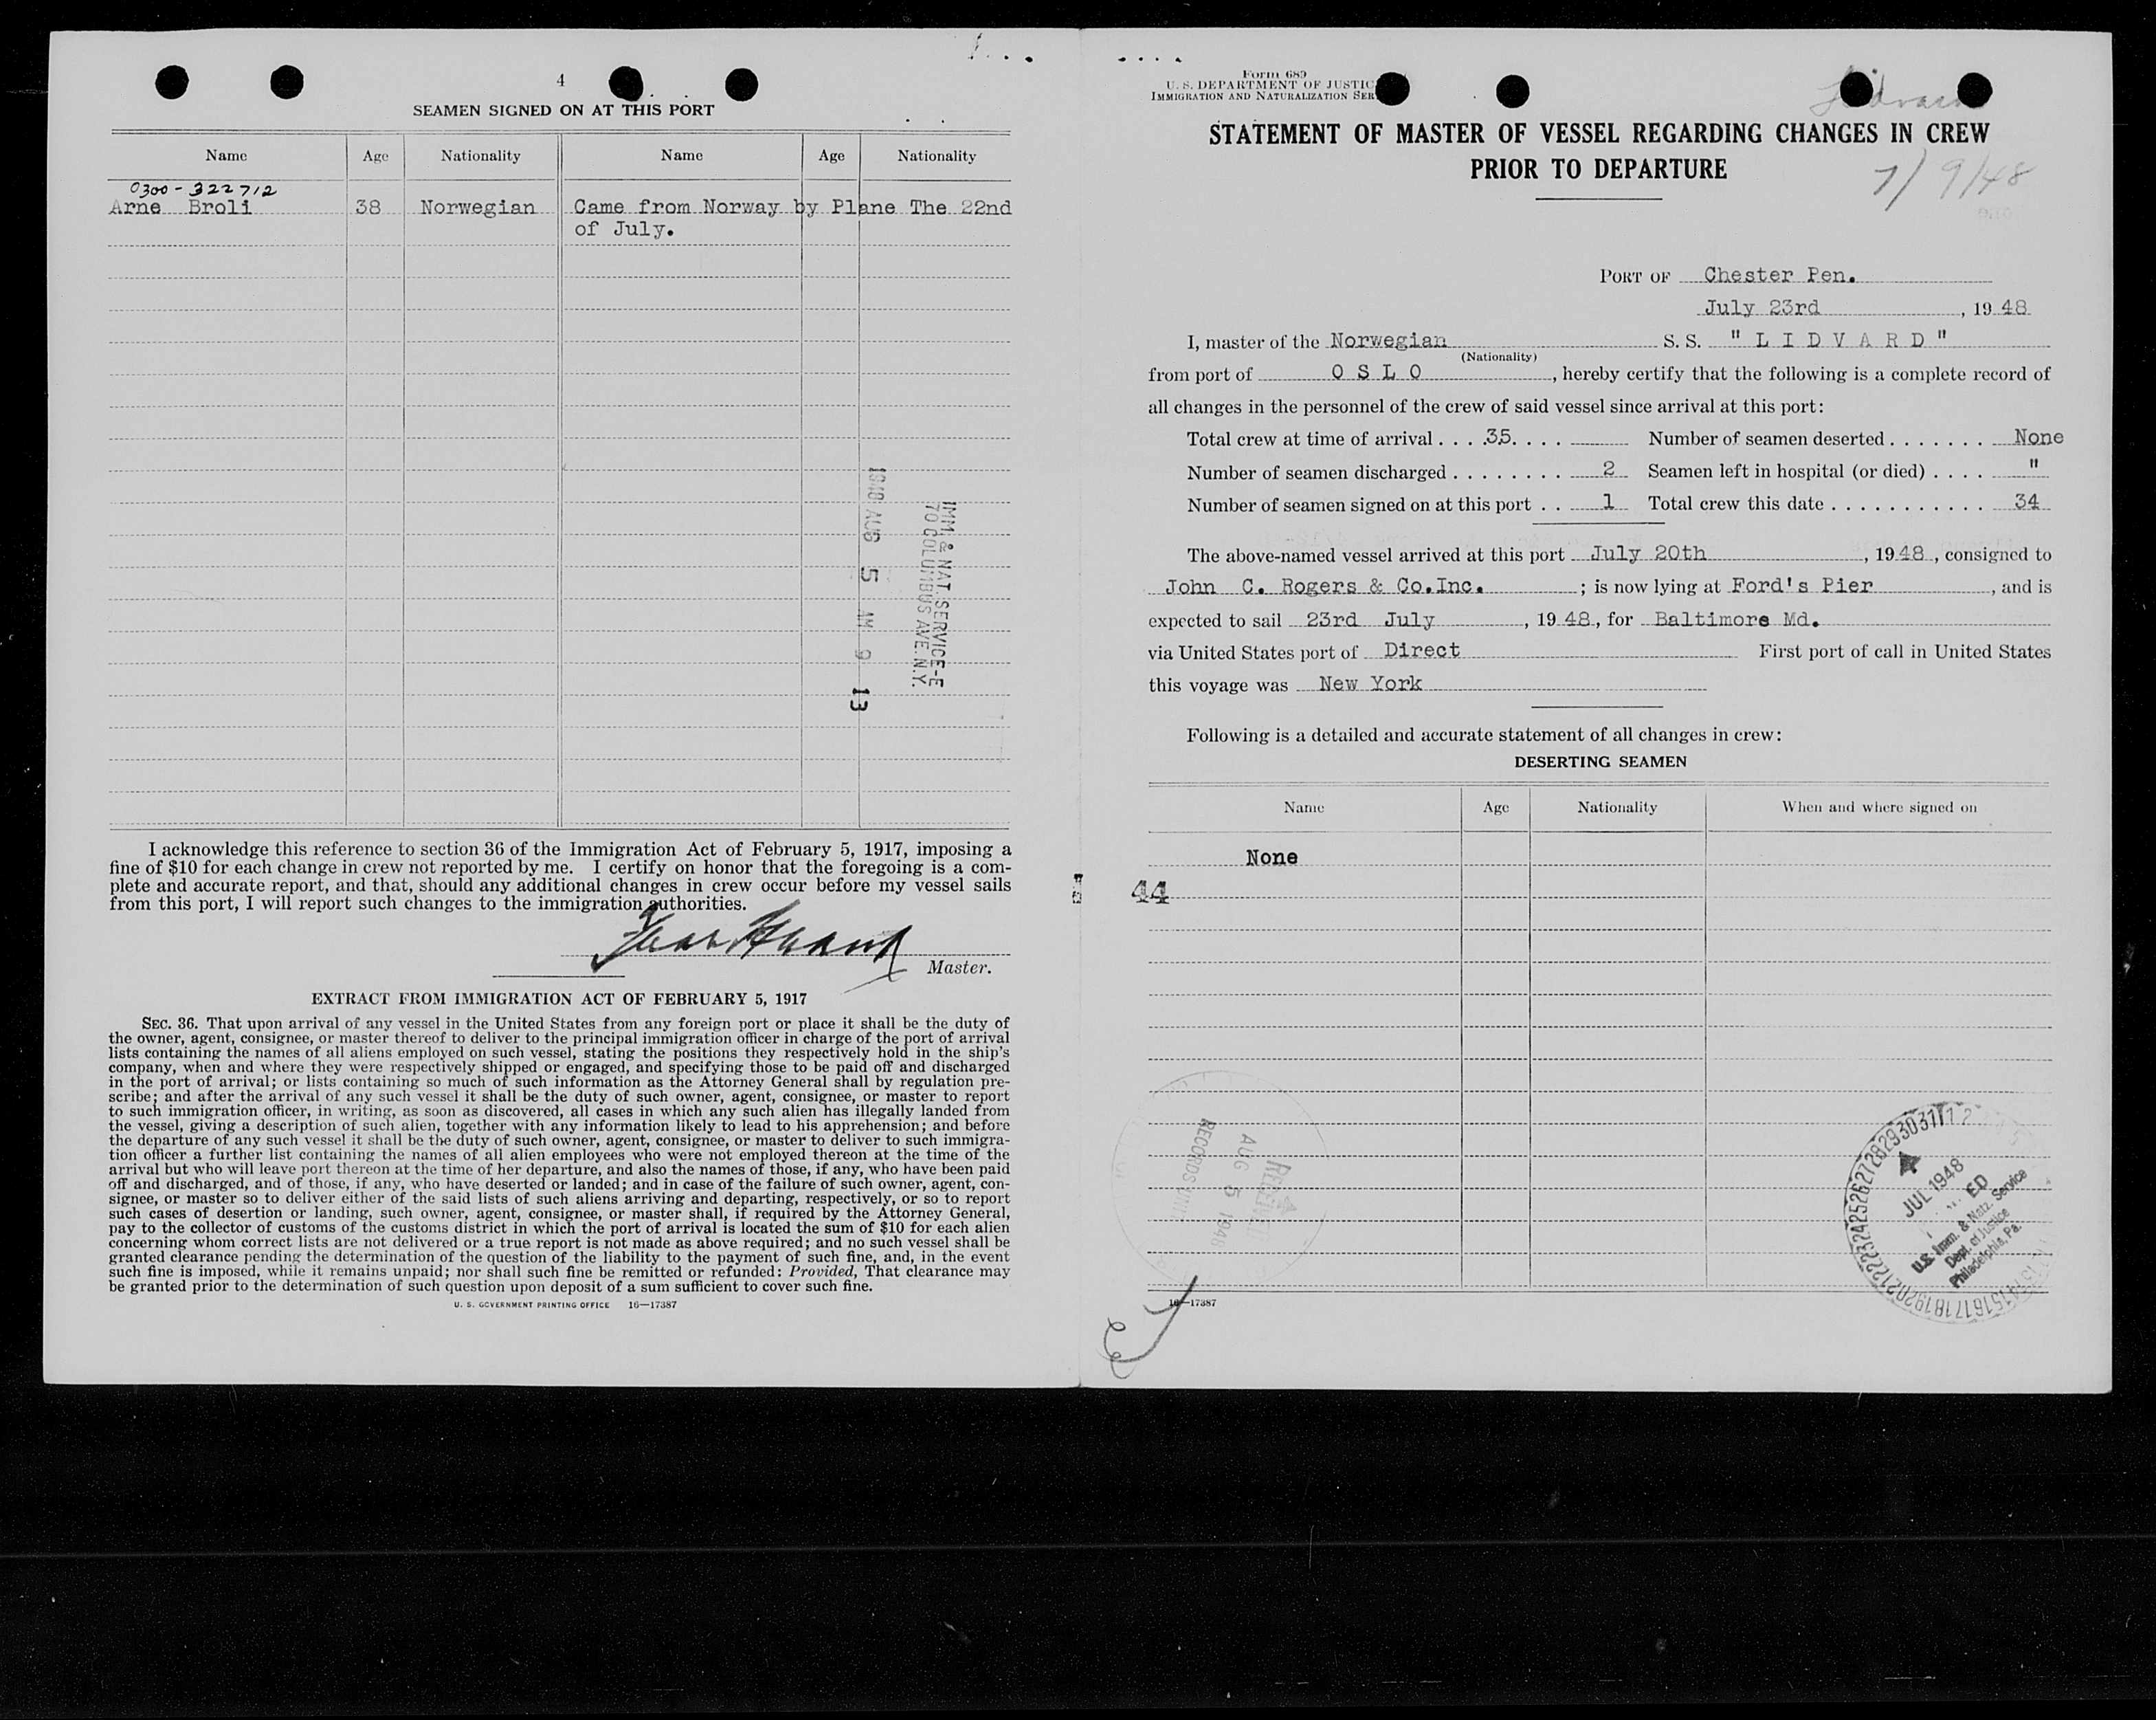 4
SEAMEN SIGNED ON AT THIS PORT
Name Age Nationality Name Age Nationality
0300-322712
Arne Broli 38 Norwegian Came from Norway by Plane The 22nd
of July.
IMM. & NAT. SERVICE-E
70 COLUMBUS AVE. N.Y.
1948 AUG 5 AM 9 13
I acknowledge this reference to section 36 of the Immigration Act of February 5, 1917, imposing a
fine of $10 for each change in crew not reported by me. I certify on honor that the foregoing is a com-
plete and accurate report, and that, should any additional changes in crew occur before my vessel sails
from this port, I will report such changes to the immigration authorities.
Master.
EXTRACT FROM IMMIGRATION ACT OF FEBRUARY 5, 1917
SEC. 36. That upon arrival of any vessel in the United States from any foreign port or place it shall be the duty of
the owner, agent, consignee, or master thereof to deliver to the principal immigration officer in charge of the port of arrival
lists containing the names of all aliens employed on such vessel, stating the positions they respectively hold in the ship's
company, when and where they were respectively shipped or engaged, and specifying those to be paid off and discharged
in the port of arrival; or lists containing so much of such information as the Attorney General shall by regulation pre-
scribe; and after the arrival of any such vessel it shall be the duty of such owner, agent, consignee, or master to report
to such immigration officer, in writing, as soon as discovered, all cases in which any such alien has illegally landed from
the vessel, giving a description of such alien, together with any information likely to lead to his apprehension; and before
the departure of any such vessel it shall be the duty of such owner, agent, consignee, or master to deliver to such immigra-
tion officer a further list containing the names of all alien employees who were not employed thereon at the time of the
arrival but who will leave port thereon at the time of her departure, and also the names of those, if any, who have been paid
off and discharged, and of those, if any, who have deserted or landed; and in case of the failure of such owner, agent, con-
signee, or master so to deliver either of the said lists of such aliens arriving and departing, respectively, or so to report
such cases of desertion or landing, such owner, agent, consignee, or master shall, if required by the Attorney General,
pay to the collector of customs of the customs district in which the port of arrival is located the sum of $10 for each alien
concerning whom correct lists are not delivered or a true report is not made as above required; and no such vessel shall be
granted clearance pending the determination of the question of the liability to the payment of such fine, and, in the event
such fine is imposed, while it remains unpaid; nor shall such fine be remitted or refunded: Provided, That clearance may
be granted prior to the determination of such question upon deposit of a sum sufficient to cover such fine.
U. S. GOVERNMENT PRINTING OFFICE 16—17387
Form 689
U. S. DEPARTMENT OF JUSTIC
IMMIGRATION AND NATURALIZATION SER
Lidvard
STATEMENT OF MASTER OF VESSEL REGARDING CHANGES IN CREW
PRIOR TO DEPARTURE
7/9/48
PORT OF Chester Pen.
July 23rd, 1948
I, master of the Norwegian S. S. "LIDVARD"
(Nationality)
from port of OSLO, hereby certify that the following is a complete record of
all changes in the personnel of the crew of said vessel since arrival at this port:
Total crew at time of arrival .... 35.... Number of seamen deserted ....... None
Number of seamen discharged ........ 2 Seamen left in hospital (or died) .... "
Number of seamen signed on at this port .. 1 Total crew this date ........... 34
The above-named vessel arrived at this port July 20th, 1948, consigned to
John C. Rogers & Co.Inc.; is now lying at Ford's Pier, and is
expected to sail 23rd July, 1948, for Baltimore Md.
via United States port of Direct First port of call in United States
this voyage was New York
Following is a detailed and accurate statement of all changes in crew:
DESERTING SEAMEN
Name Age Nationality When and where signed on
None
44
RECEIVED
AUG 5 1948
RECORDS UNIT
JUL 1948
U.S. Imm. & Natz. Service
Dept. of Justice
Philadelphia, Pa.
16—17387